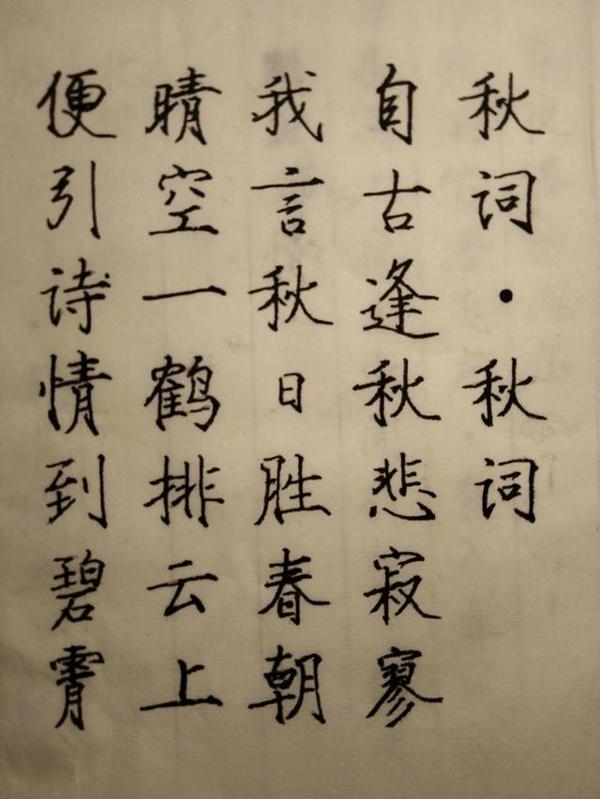 秋词·秋词
自古逢秋悲寂寥
我言秋日胜春朝
晴空一鹤排云上
便引诗情到碧霄